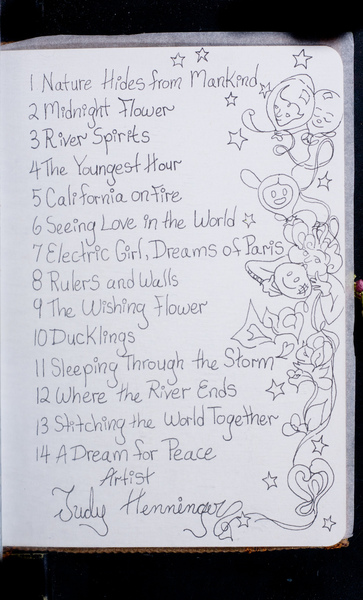 1 Nature Hides from Mankind
2 Midnight Flower
3 River Spirits
4 The Youngest Hour
5 California on Fire
6 Seeing Love in the World
7 Electric Girl, Dreams of Paris
8 Rulers and Walls
9 The Wishing Flower
10 Ducklings
11 Sleeping Through the Storm
12 Where the River Ends
13 Stitching the World Together
14 A Dream for Peace
Artist
Judy Henninger